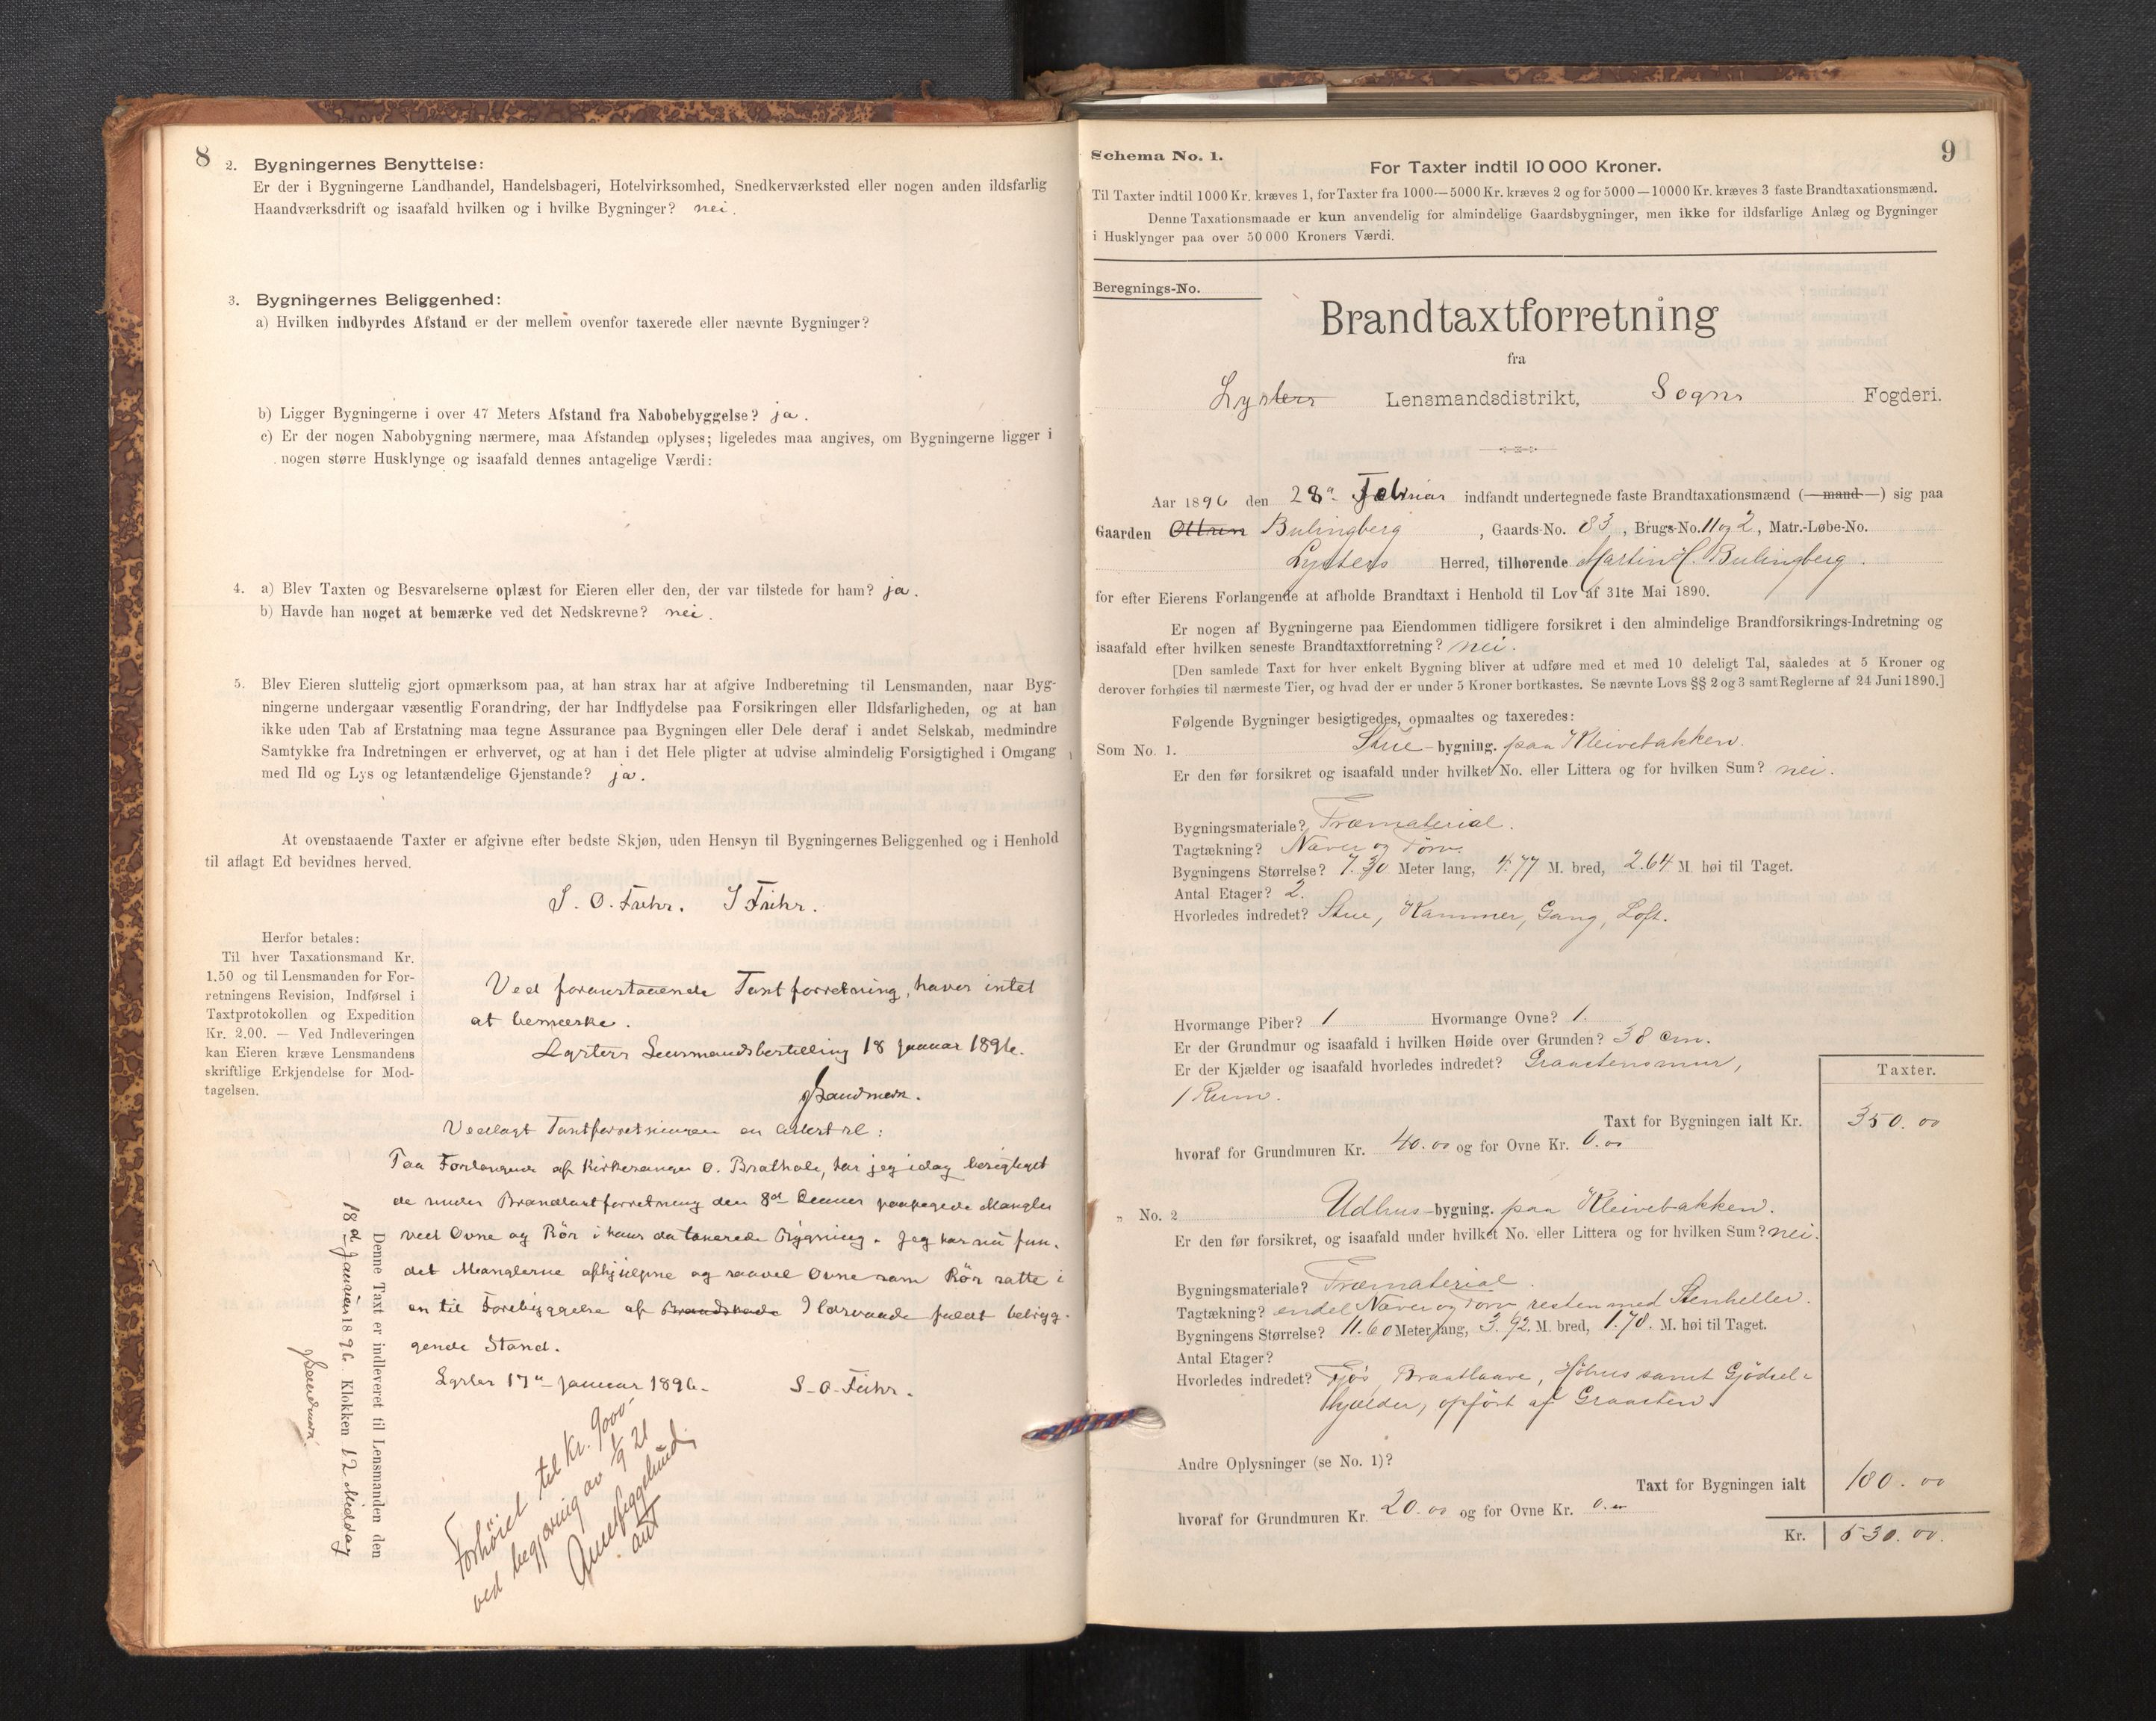 8
2. Bygningernes Benyttelse:
Er der i Bygningerne Landhandel, Handelsbageri, Hotelvirksomhed, Snedkerværksted eller nogen anden ildsfarlig
Haandværksdrift og isaafald hvilken og i hvilke Bygninger? nei.
3. Bygningernes Beliggenhed:
a) Hvilken indbyrdes Afstand er der mellem ovenfor taxerede eller nævnte Bygninger?
b) Ligger Bygningerne i over 47 Meters Afstand fra Nabobebyggelse? ja.
c) Er der nogen Nabobygning nærmere, maa Afstanden oplyses; ligeledes maa angives, om Bygningerne ligger i
nogen større Husklynge og isaafald dennes antagelige Værdi:
4. a) Blev Taxten og Besvarelserne oplæst for Eieren eller den, der var tilstede for ham? ja.
b) Havde han noget at bemærke ved det Nedskrevne? nei.
5. Blev Eieren sluttelig gjort opmærksom paa, at han strax har at afgive Indberetning til Lensmanden, naar Byg-
ningerne undergaar væsentlig Forandring, der har Indflydelse paa Forsikringen eller Ildsfarligheden, og at han
ikke uden Tab af Erstatning maa tegne Assurance paa Bygningen eller Dele deraf i andet Selskab, medmindre
Samtykke fra Indretningen er erhvervet, og at han i det Hele pligter at udvise almindelig Forsigtighed i Omgang
med Ild og Lys og letantændelige Gjenstande? ja.
At ovenstaaende Taxter er afgivne efter bedste Skjøn, uden Hensyn til Bygningernes Beliggenhed og i Henhold
til aflagt Ed bevidnes herved.
S. O. Fuhr. I Fuhr.
Herfor betales:
Til hver Taxationsmand Kr.
1.50 og til Lensmanden for For-
retningens Revision, Indførsel i
Taxtprotokollen og Expedition
Kr. 2.00. — Ved Indleveringen
kan Eieren kræve Lensmandens
skriftlige Erkjendelse for Mod-
tagelsen.
Ved foranstaaende Taxtforretning, haves intet
at bemærke.
Lysters Lensmandsbestilling 18 Januar 1896.
Vedlagt Taxtforretningen en Attest sl:
Paa Forlangende af Kirkesanger O. Brathole, har jeg idag besigtiget
de under Brandtaxtforretning den 8de paapegede Mangler
ved Ovne og Rör i hans da taxerede Bygning. Jeg har nu fun-
det Manglerne afhjulpne og saavel Ovne som Rör satte i
en til Forebyggelse af Brandskade Ildsvaade fuldt betryg-
gende Stand.
Lyster 17de Januar 1896. S. O. Fuhr.
Denne Taxt er indleveret til Lensmanden den
18de Januar 1896 Klokken 12 Middag
Forhöiet til Kr. 9000.-
ved begjæring av 1/9 21
9
Schema No. 1.
For Taxter indtil 10 000 Kroner.
Til Taxter indtil 1000 Kr. kræves 1, for Taxter fra 1000—5000 Kr. kræves 2 og for 5000—10000 Kr. kræves 3 faste Brandtaxationsmænd.
Denne Taxationsmaade er kun anvendelig for almindelige Gaardsbygninger, men ikke for ildsfarlige Anlæg og Bygninger
i Husklynger paa over 50 000 Kroners Værdi.
Beregnings-No.
Brandtaxtforretning
fra
Lysters Lensmandsdistrikt, Sogns Fogderi.
Aar 1896 den 28de Februar indfandt undertegnede faste Brandtaxationsmænd (—mand—) sig paa
Gaarden Ottum Bulingberg, Gaards-No. 83, Brugs-No. 11 og 2, Matr.-Løbe-No.
Lysters Herred, tilhørende Martin H. Bulingberg.
for efter Eierens Forlangende at afholde Brandtaxt i Henhold til Lov af 31te Mai 1890.
Er nogen af Bygningerne paa Eiendommen tidligere forsikret i den almindelige Brandforsikrings-Indretning og
isaafald efter hvilken seneste Brandtaxtforretning? nei.
[Den samlede Taxt for hver enkelt Bygning bliver at udføre med et med 10 deleligt Tal, saaledes at 5 Kroner og
derover forhøies til nærmeste Tier, og hvad der er under 5 Kroner bortkastes. Se nævnte Lovs §§ 2 og 3 samt Reglerne af 24 Juni 1890.]
Følgende Bygninger besigtigedes, opmaaltes og taxeredes:
Som No. 1. Stue-bygning. paa Kleivebakken.
Er den før forsikret og isaafald under hvilket No. eller Littera og for hvilken Sum? nei.
Bygningsmateriale? Træmaterial.
Tagtækning? Næver og Törv.
Bygningens Størrelse? 7.30 Meter lang, 4.77 M. bred, 2.64 M. høi til Taget.
Antal Etager? 2.
Hvorledes indredet? Stue, Kammer, Gang, Loft.
Hvormange Piber? 1 Hvormange Ovne? 1.
Er der Grundmur og isaafald i hvilken Høide over Grunden? 38 cm.
Er der Kjælder og isaafald hvorledes indredet? Graastensmur,
1 Rum.
Taxter.
Taxt for Bygningen ialt Kr. 350.00
hvoraf for Grundmuren Kr. 40.00 og for Ovne Kr. 0.00
„ No. 2 Udhus-bygning. paa Kleivebakken.
Er den før forsikret, og isaafald under hvilket No. eller Littera og for hvilken Sum? nei.
Bygningsmateriale? Træmaterial.
Tagtækning? endel Næver og Törv, resten med Stenheller.
Bygningens Størrelse? 11.60 Meter lang, 3.92. M. bred, 1.78. M. høi til Taget.
Antal Etager?
Hvorledes indredet? Fjös, Braatlaave, Höhus samt Gjödsel-
kjælder, opfört af Graasten.
Andre Oplysninger (se No. 1)?
Taxt for Bygningen ialt 180.00
hvoraf for Grundmuren Kr. 20.00 og for Ovne Kr. 0.00
Kr. 530.00.